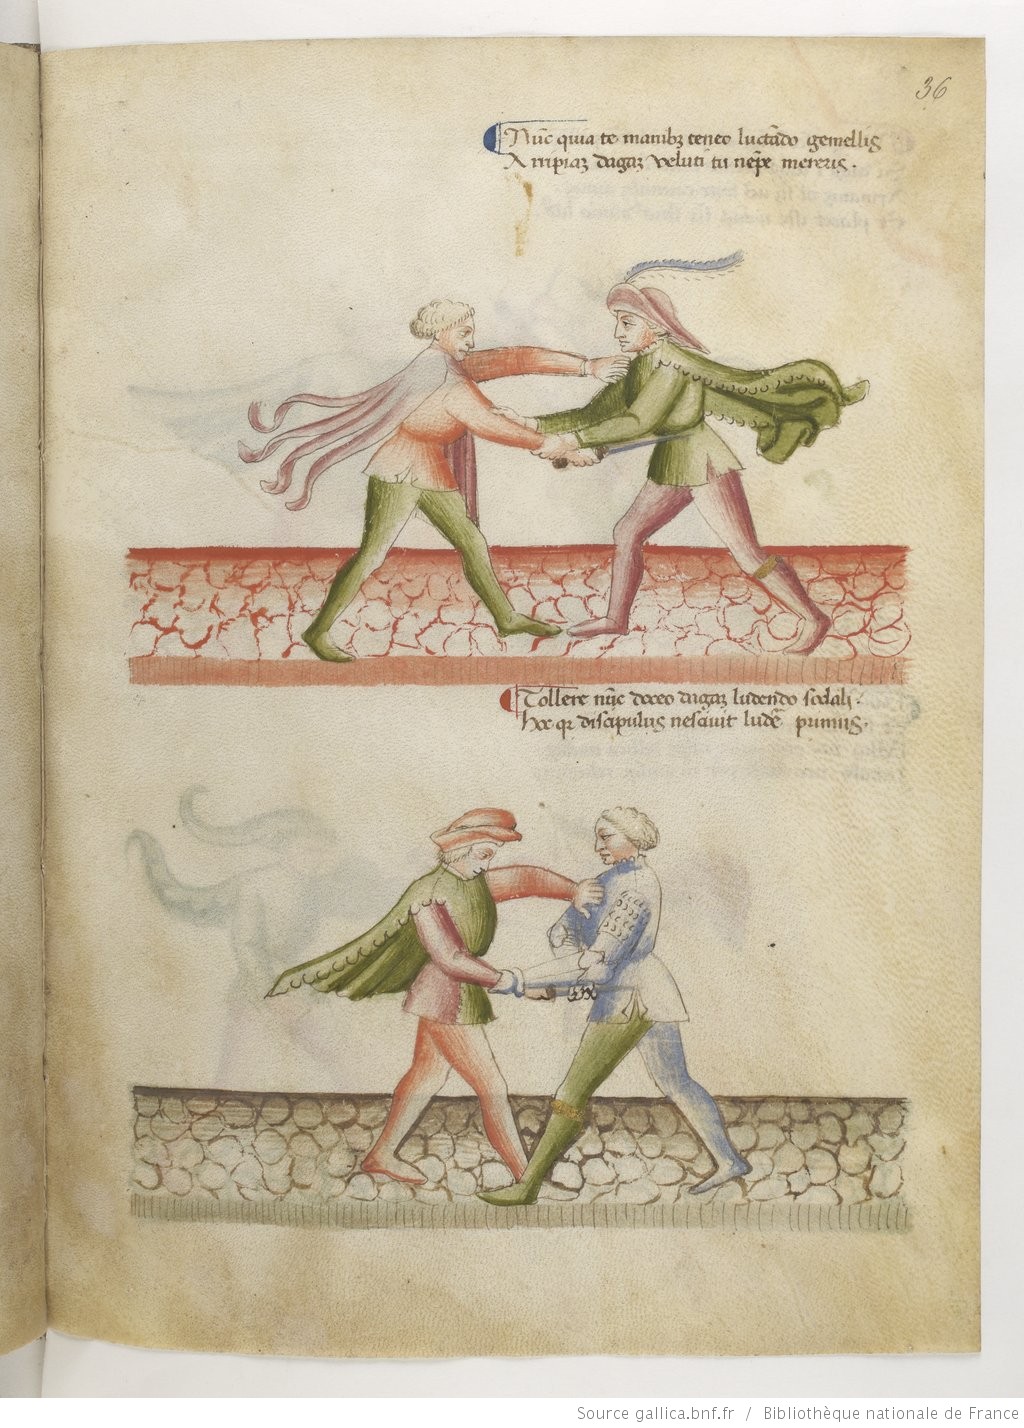 36
Nūc quia te manibꝫ teneo luctādo gemellis
Arripiaꝫ dagaꝫ veluti tu nēpe mereris.
Tollere nūc doceo dagaꝫ ludendo sodali.
Hoc qꝫ discipulus nescivit ludē primus.
Source gallica.bnf.fr / Bibliothèque nationale de France